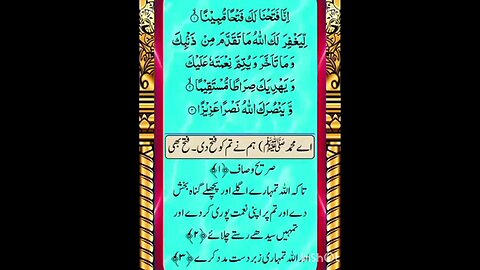 اِنَّا فَتَحْنَا لَكَ فَتْحًا مُّبِيْنًا ۙ﴿۱﴾
لِّيَغْفِرَ لَكَ اللّٰهُ مَا تَقَدَّمَ مِنْ ذَنْۢبِكَ
وَمَا تَاَخَّرَ وَيُتِمَّ نِعْمَتَهٗ عَلَيْكَ
وَيَهْدِيَكَ صِرَاطًا مُّسْتَقِيْمًا ۙ﴿۲﴾
وَّيَنْصُرَكَ اللّٰهُ نَصْرًا عَزِيْزًا ﴿۳﴾
اے محمد ﷺ) ہم نے تم کو فتح دی۔ فتح بھی
صریح وصاف ﴿۱﴾
تاکہ اللہ تمہارے اگلے اور پچھلے گناہ بخش
دے اور تم پر اپنی نعمت پوری کر دے اور
تمہیں سیدھے رستے چلائے ﴿۲﴾
اللہ تمہاری زبردست مدد کرے ﴿۳﴾